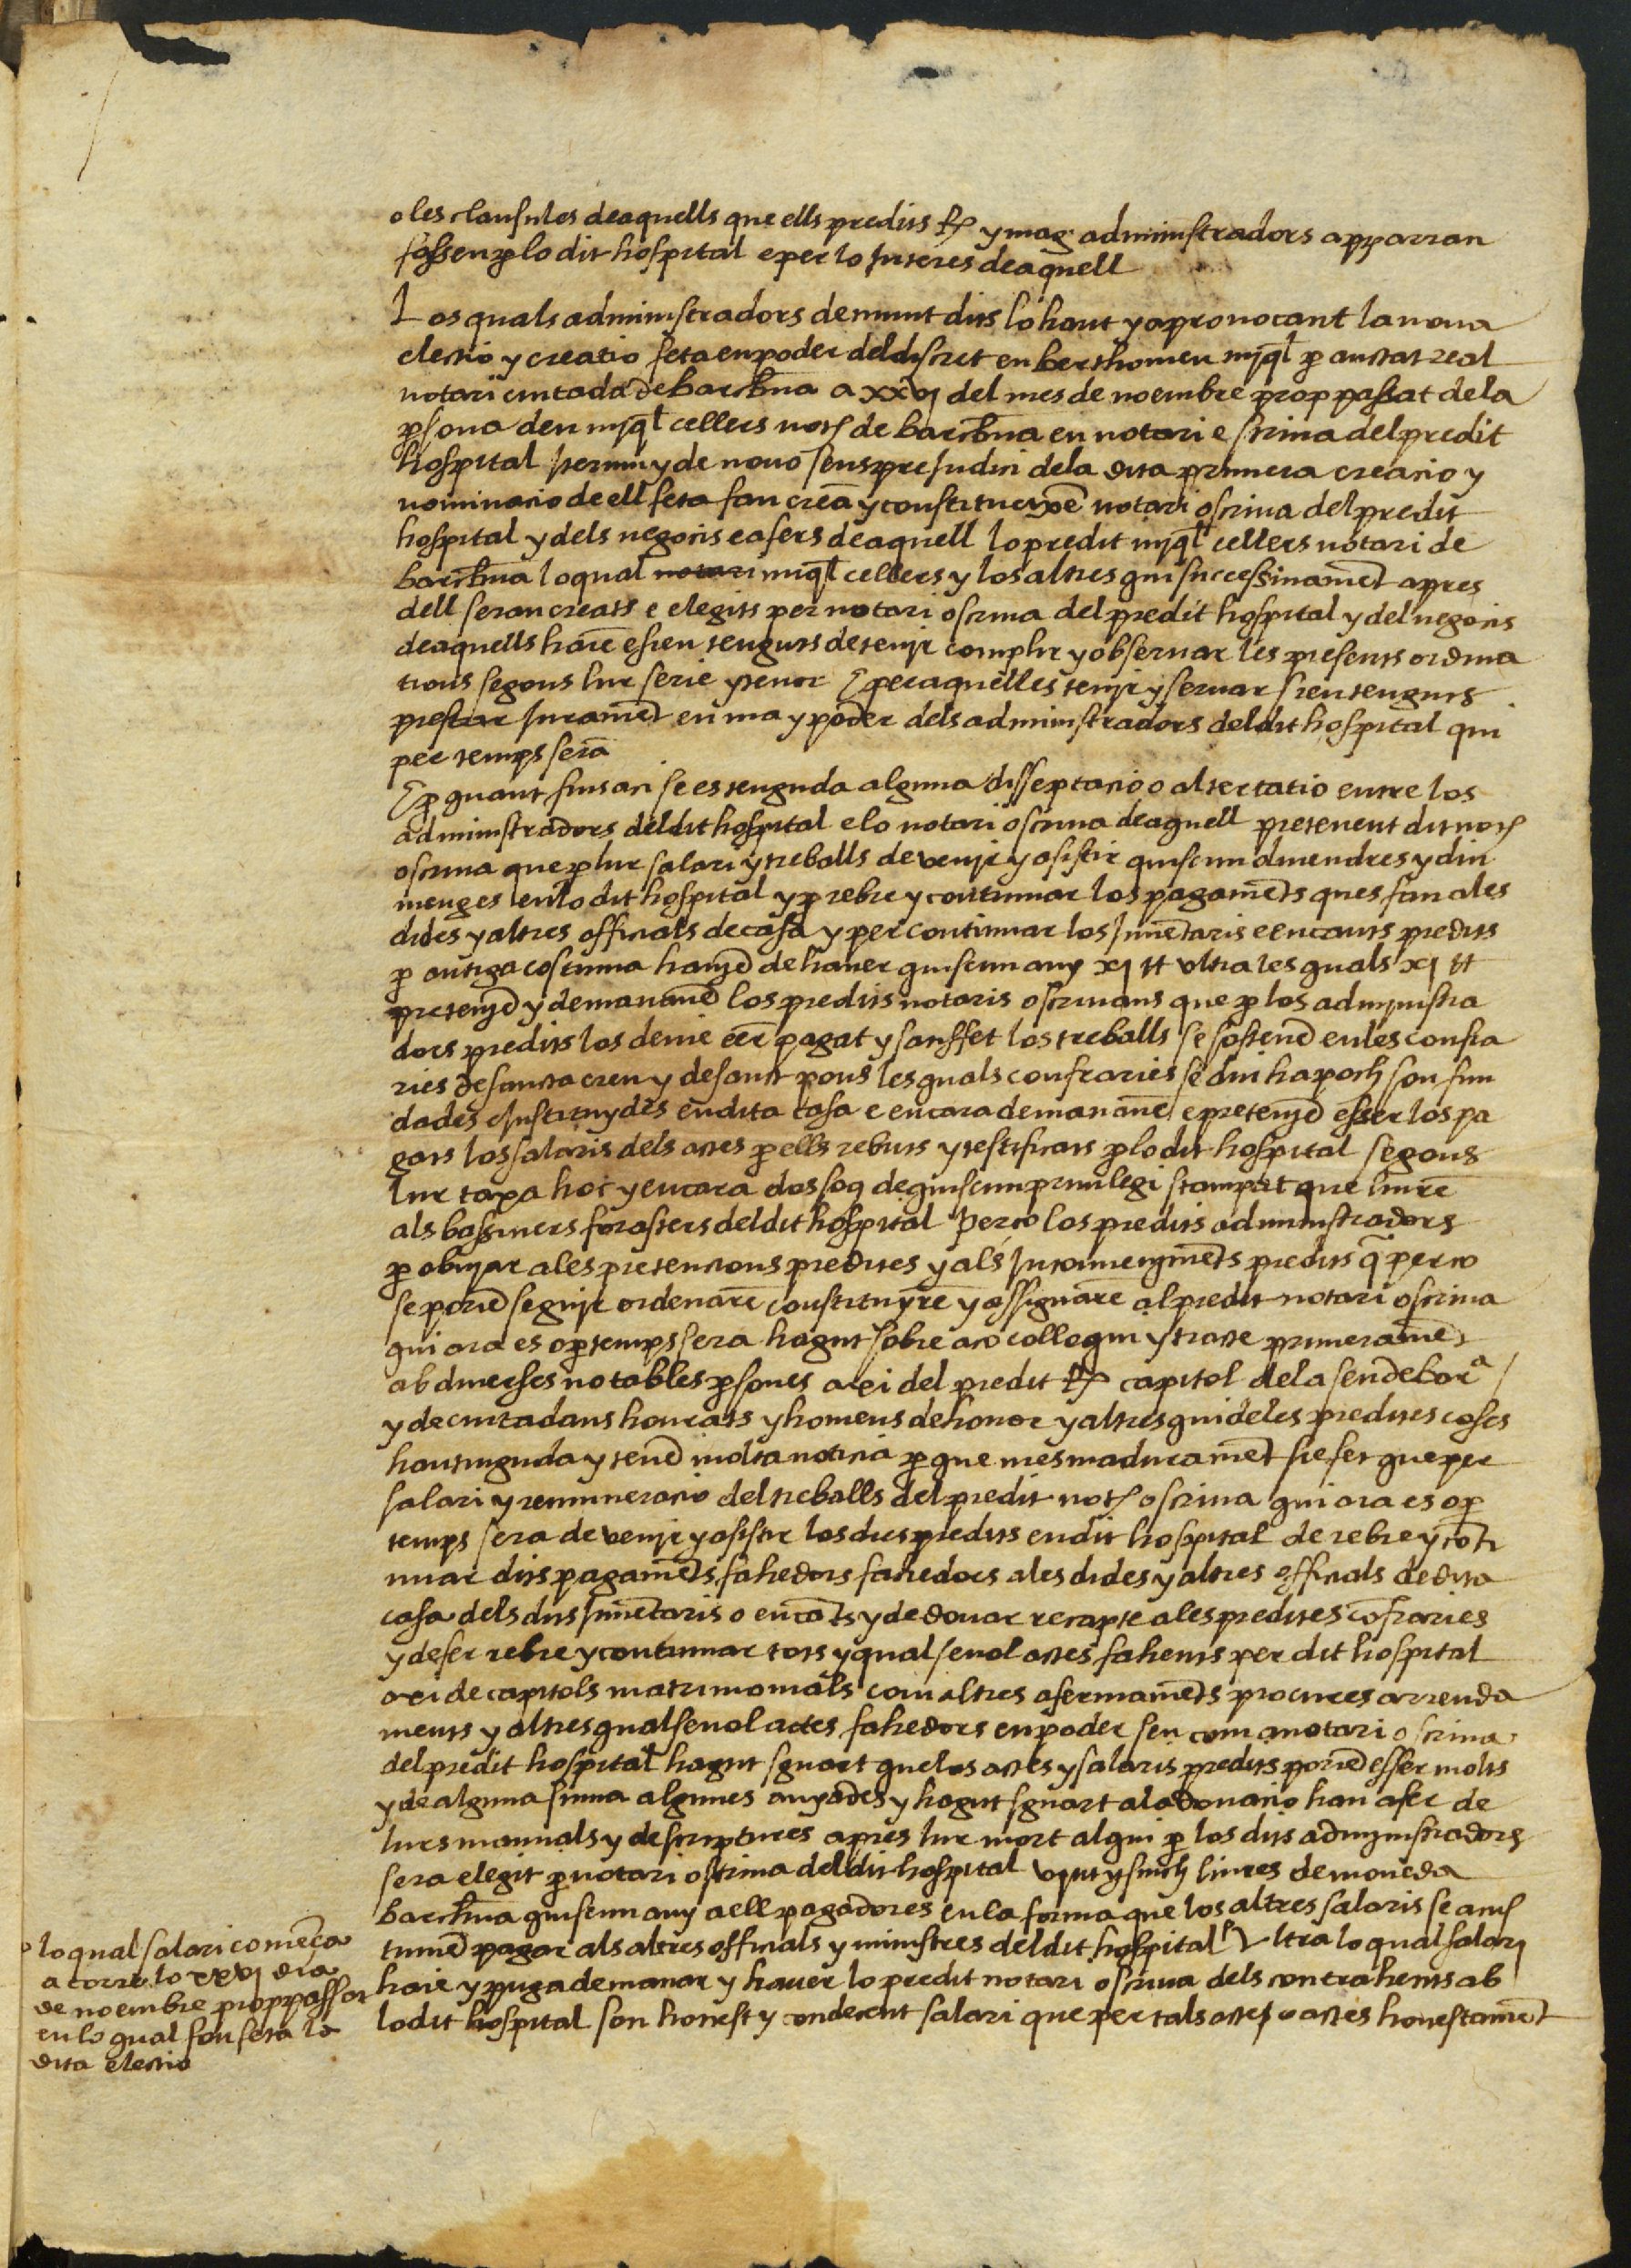 o les clausules de aquells que ells predits R y mag. administradors apparran
fossen per lo dit hospital e per lo interes de aquell
Los quals administradors demunt dits lohant y aprovocant la nova
electio y creatio feta en poder del discret en Berthomeu Miql per auctat real
notari ciutada de barchna a xxvj del mes de noembre prop passat de la
psona den miql cellers not de barchna en notari e scriva del predit
hospital iterum y de nouo sens prejudici dela dita primera creacio y
nominacio de ell feta fan creã y constituexẽ notari o scriva del predit
hospital y dels negocis e afers de aquell lo predit miql cellers notari de
barchna lo qual notari miql cellers y los altres qui successivamẽt apres
dell seran creats e elegits per notari o scriva del predit hospital y del negocis
de aquells haiẽ e sien tenguts de tenir complir y observar les presents ordina
tions segons lur serie y tenor E per aquelles tenir y servar sien tenguts
prestar juramẽt en ma y poder dels administradors del dit hospital qui
per temps serã
E p quant fins aci se es tenguda alguna disseptacio o altercatio entre los
administradors del dit hospital e lo notari o scriva de aquell pretenent dit not
o scriva que p lur salari y treballs de venir y asistir quiscun divendres y diu
menges en lo dit hospital y p rebre y continuar los pagamẽts ques fan a les
dides y altres officials de casa y per continuar los inuẽtaris e encants predits
p antiga costuma haviẽ de haver quiscun any xj ll ultra les quals xj ll
preteniẽ y demanavẽ los predits notaris o scrivans que p los administra
dors predits los devie eẽr pagat y satisffet los treballs se sostenẽ en les confra
ries de sancta creu y de sanct pons les quals confraries se diu ha poch son fun
dades e instituydes en dita casa e encara demanavẽ e preteniẽ esser los pa
gats los salaris dels actes p ells rebuts y testificats p lo dit hospital segons
lur taxa hoc y encara dos soꝰ de quiscun privilegi stampat que liurẽ
als bassiners forasters del dit hospital Perço los predits administradors
p obujar a les pretencions predites y als inconvenjmẽts predits q̃ perço
se poriẽ seguir ordenarẽ constituyrẽ y assignarẽ al predit notari o scriva
qui ara es o p temps sera hagut sobre aço colloqui y tracte primeramẽt
ab diverses notables psones axi del predit R capitol dela seu de bara
y de ciutadans honrats y homens de honor y altres qui de les predites coses
han tinguda y tenẽ molta noticia p que mes maduramẽt sie fet que per
salari y remuneracio del treballs del predit not o scriva qui ara es o p
temps sera de venir y asistir los dies predits en dit hospital de rebre y cõti
nuar dits pagamẽts fahedors fahedors a les dides y altres officials de dita
casa dels dits inuẽtaris o encãts y de donar recapte a les predites cõfraries
y de fer rebre y continuar tots y qual se vol actes fahents per dit hospital
axi de capitols matrimonials com altres afermamẽts procures arrenda
ments y altres qual se vol actes fahedors en poder seu com a notari o scriva
del predit hospital hagut sguart que los actes y salaris predits poriẽ esser molts
y de alguna suma algunes anyades y hagut sguart a la donacio han a fer de
lurs manuals y de scriptures apres lur mort al qui p los dits administradors
sera elegit p notari o scriva del dit hospital vint y sinch liures de moneda
barchna quiscun any a ell pagadores en la forma que los altres salaris se acus
tumẽ pagar als altres officials y ministres del dit hospital Ultra lo qual salari
haie y puga demanar y haver lo predit notari o scriva dels contrahents ab
lo dit hospital son honest y condecent salari que per tals actes o actes honestamẽt
lo qual salari comẽça
a correr lo xxvj dia
de noembre prop passat
en lo qual fon feta la
dita electio